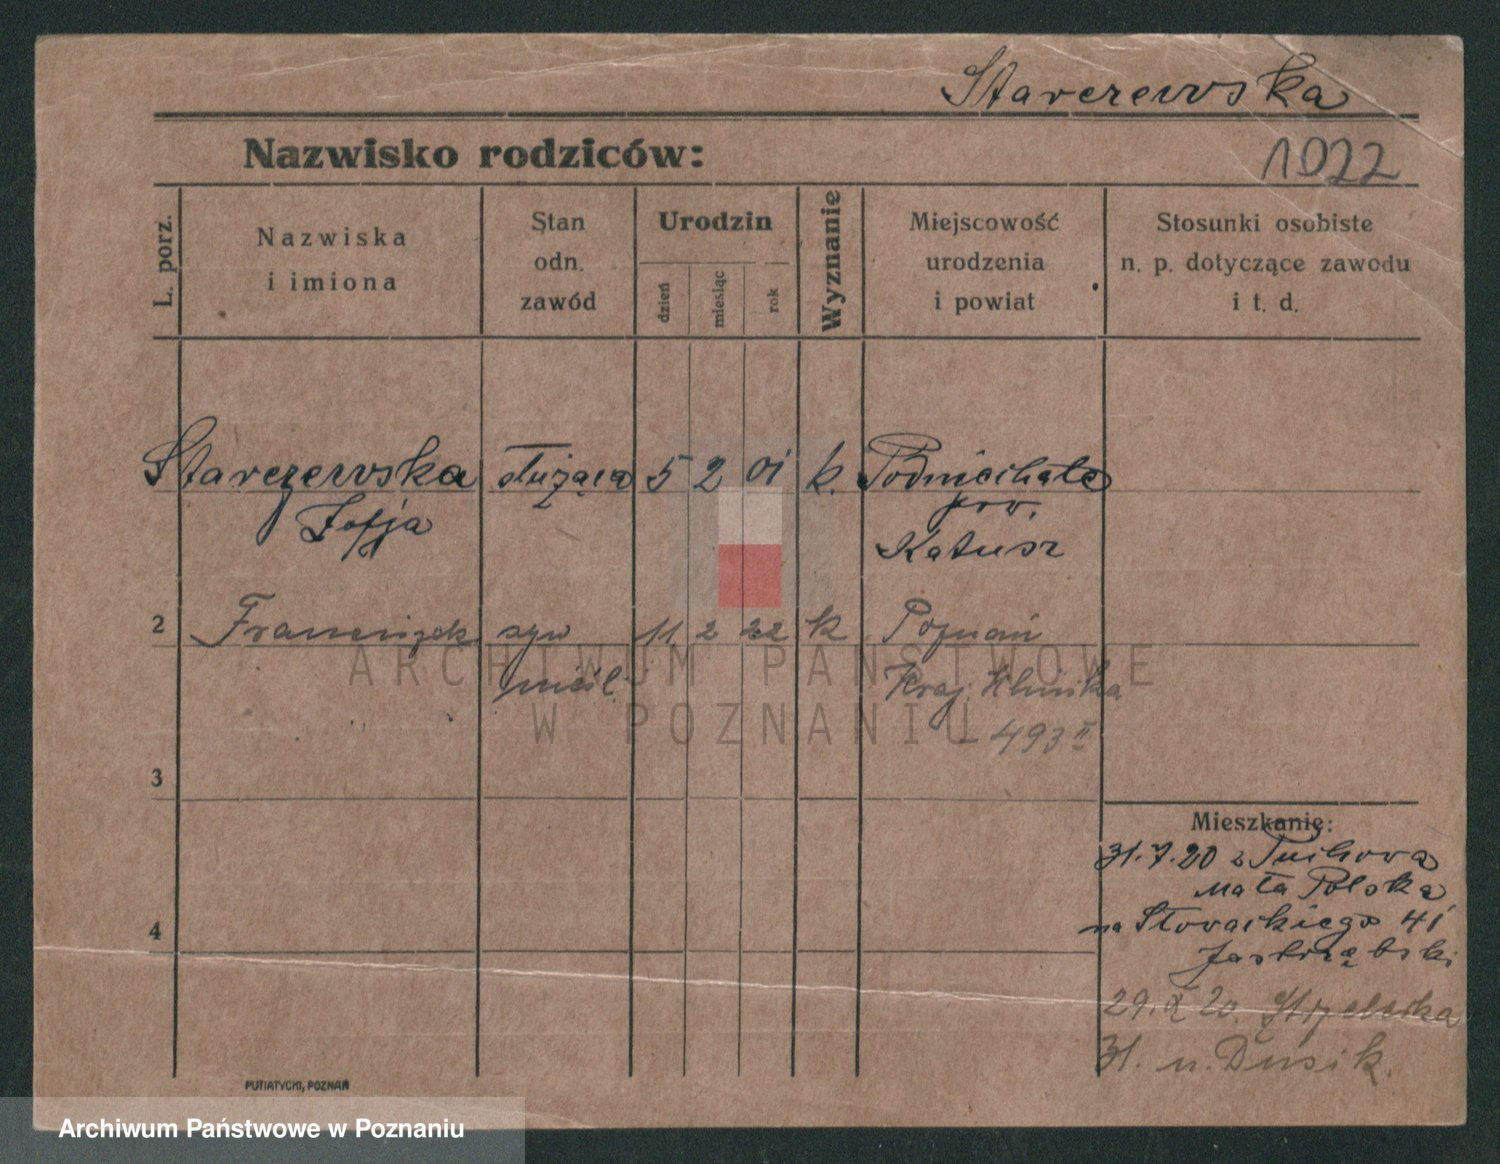 Starczewska
Nazwisko rodziców:
1922
L. porz.
Nazwiska
i imiona
Stan
odn.
zawód
Urodzin
dzień
miesiąc
rok
Wyznanie
Miejscowość
urodzenia
i powiat
Stosunki osobiste
n. p. dotyczące zawodu
i t. d.
Starczewska służąca 5 2 01 k. Podmiehale
Zofja pow.
Kałusz
2 Franciszek syn 11 2 22 k Poznań
nieśl. Kraj. Klinika
493 II
3
ARCHIWUM PAŃSTWOWE
W POZNANIU
Mieszkanie:
31.7.20 z
Mała Polska
4
na Słowackiego 41
Jastrzębski
29. X 20. Strzelecka
31. u. Dusik.
PUTIATYCKI, POZNAŃ
Archiwum Państwowe w Poznaniu